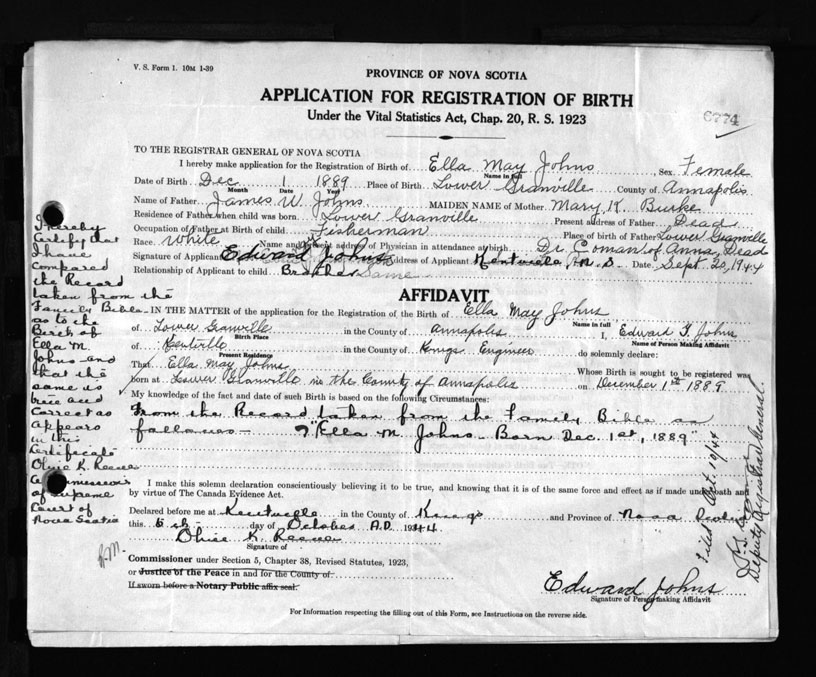 V. S. Form 1. 10M 1-39
PROVINCE OF NOVA SCOTIA
APPLICATION FOR REGISTRATION OF BIRTH
6774
Under the Vital Statistics Act, Chap. 20, R. S. 1923
TO THE REGISTRAR GENERAL OF NOVA SCOTIA
I hereby make application for the Registration of Birth of Ella May Johns, Sex Female
Name in full
Date of Birth Dec 1 1889 Place of Birth Lower Granville County of Annapolis
Month Day Year
Name of Father James W. Johns MAIDEN NAME of Mother Mary K. Burke
Residence of Father when child was born Lower Granville Present address of Father Dead
Occupation of Father at Birth of child Fisherman Place of birth of Father Lower Granville
Race White Name and present address of Physician in attendance at birth Dr Coman of Anna, Dead
Signature of Applicant Edward Johns Address of Applicant Kentville, N. S. Date Sept. 20, 1944
Relationship of Applicant to child Brother Same
AFFIDAVIT
IN THE MATTER of the application for the Registration of the Birth of Ella May Johns
Name in full
of Lower Granville in the County of Annapolis I, Edward F. Johns
Birth Place Name of Person Making Affidavit
of Kentville in the County of Kings Engineer do solemnly declare:
Present Residence
That Ella May Johns Whose Birth is sought to be registered was
born at Lower Granville in the County of Annapolis on December 1st 1889
My knowledge of the fact and date of such Birth is based on the following Circumstances:
From the Record taken from the Family Bible as
follows - "Ella M. Johns - Born Dec. 1st, 1889"
I make this solemn declaration conscientiously believing it to be true, and knowing that it is of the same force and effect as if made under oath and
by virtue of The Canada Evidence Act.
Declared before me at Kentville in the County of Kings and Province of Nova Scotia
this 6th day of October A.D. 1944
Olive K. Reeve
Signature of
Commissioner under Section 5, Chapter 38, Revised Statutes, 1923,
or Justice of the Peace in and for the County of
If sworn before a Notary Public affix seal.
Edward Johns
Signature of Person making Affidavit
For Information respecting the filling out of this Form, see Instructions on the reverse side.
I hereby
Certify that
I have
compared
the Record
taken from the
Family Bible
as to the
Birth of
Ella M.
Johns and
that the
same is
true and
Correct as
appears
in this
Certificate
Olive K. Reeve
A Commissioner
of Supreme
Court of
Nova Scotia
Filed Oct 10/44
Deputy Registrar General.